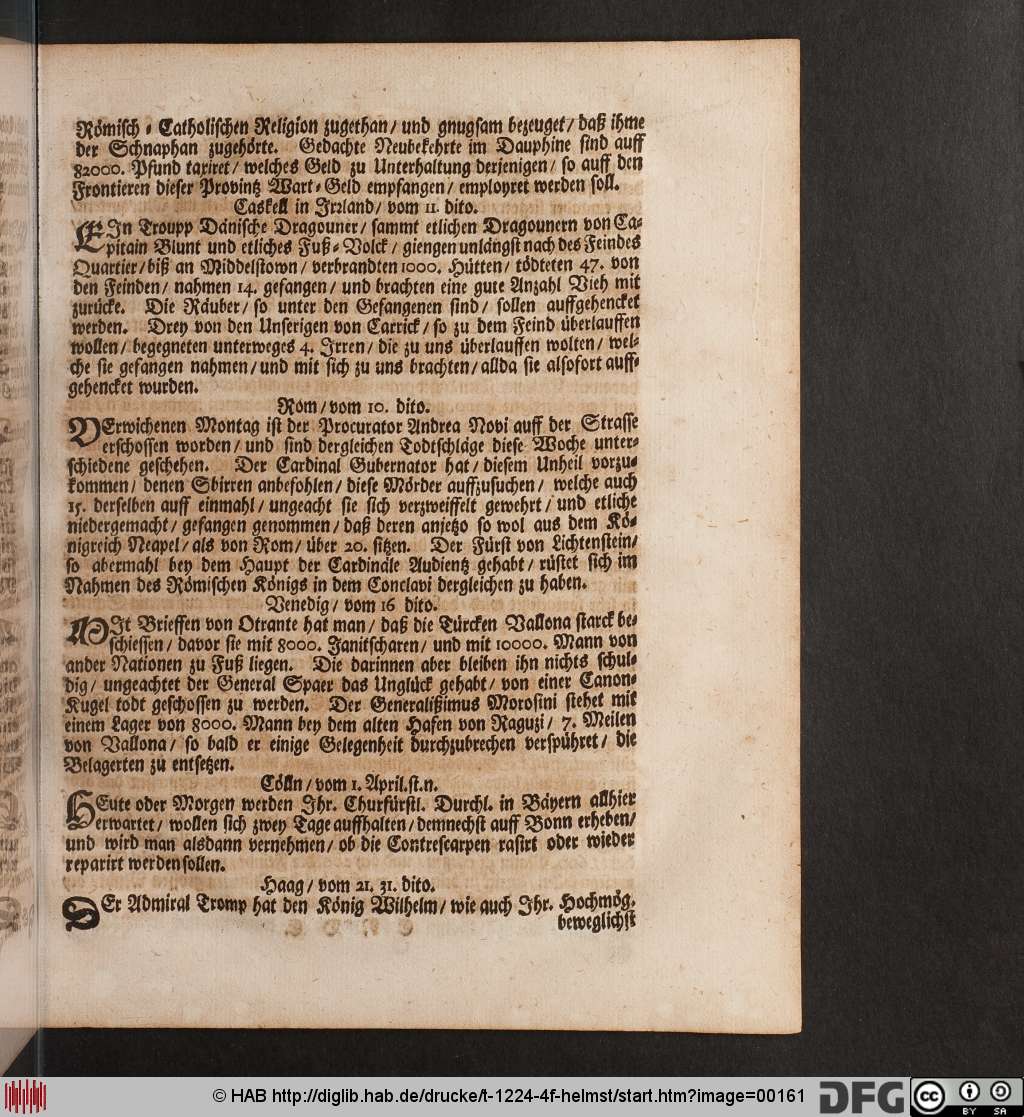 Römisch-Catholischen Religion zugethan/ und gnugsam bezeuget/ daß ihme
der Schnaphan zugehörte. Gedachte Neubekehrte im Dauphine sind auff
82000. Pfund taxiret/ welches Geld zu Unterhaltung derjenigen/ so auff den
Frontieren dieser Provintz Wart-Geld empfangen/ employret werden soll.
Caskell in Irrland/ vom 11. dito.
EIn Troupp Dänische Dragouner/ sammt etlichen Dragounern von Ca-
pitain Blunt und etliches Fuß-Volck/ giengen unlängst nach des Feindes
Quartier/ biß an Middelstown/ verbrandten 1000. Hütten/ tödteten 47. von
den Feinden/ nahmen 14. gefangen/ und brachten eine gute Anzahl Vieh mit
zurücke. Die Räuber/ so unter den Gefangenen sind/ sollen auffgehencket
werden. Drey von den Unserigen von Carrick/ so zu dem Feind überlauffen
wollen/ begegneten unterweges 4. Irren/ die zu uns überlauffen wolten/ wel-
che sie gefangen nahmen/ und mit sich zu uns brachten/ allda sie alsofort auff-
gehencket wurden.
Rom/ vom 10. dito.
VErwichenen Montag ist der Procurator Andrea Novi auff der Strasse
erschossen worden/ und sind dergleichen Todtschläge diese Woche unter-
schiedene geschehen. Der Cardinal Gubernator hat/ diesem Unheil vorzu-
kommen/ denen Sbirren anbefohlen/ diese Mörder auffzusuchen/ welche auch
15. derselben auff einmahl/ ungeacht sie sich verzweiffelt gewehrt/ und etliche
niedergemacht/ gefangen genommen/ daß deren anjetzo so wol aus dem Kö-
nigreich Neapel/ als von Rom/ über 20. sitzen. Der Fürst von Lichtenstein/
so abermahl bey dem Haupt der Cardinäle Audientz gehabt/ rüstet sich im
Nahmen des Römischen Königs in dem Conclavi dergleichen zu haben.
Venedig/ vom 16 dito.
MIt Brieffen von Otrante hat man/ daß die Türcken Vallona starck be-
schiessen/ davor sie mit 8000. Janitscharen/ und mit 10000. Mann von
ander Nationen zu Fuß liegen. Die darinnen aber bleiben ihn nichts schul-
dig/ ungeachtet der General Spaer das Unglück gehabt/ von einer Canon-
Kugel todt geschossen zu werden. Der Generalißimus Morosini stehet mit
einem Lager von 8000. Mann bey dem alten Hafen von Raguzi/ 7. Meilen
von Vallona/ so bald er einige Gelegenheit durchzubrechen verspühret/ die
Belagerten zu entsetzen.
Cölln/ vom 1. April.st.n.
HEute oder Morgen werden Ihr. Churfürstl. Durchl. in Bäyern allhier
erwartet/ wollen sich zwey Tage auffhalten/ demnechst auff Bonn erheben/
und wird man alsdann vernehmen/ ob die Contrescarpen rasirt oder wieder
reparirt werden sollen.
Haag/ vom 21. 31. dito.
DEr Admiral Tromp hat den König Wilhelm/ wie auch Ihr. Hochmög.
beweglichst
© HAB http://diglib.hab.de/drucke/t-1224-4f-helmst/start.htm?image=00161
DFG
cc
BY SA